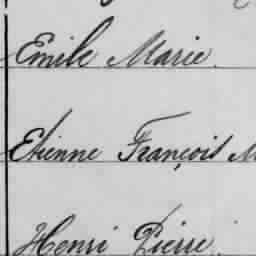 Emile Marie.
Etienne François M
Henri Pierre.